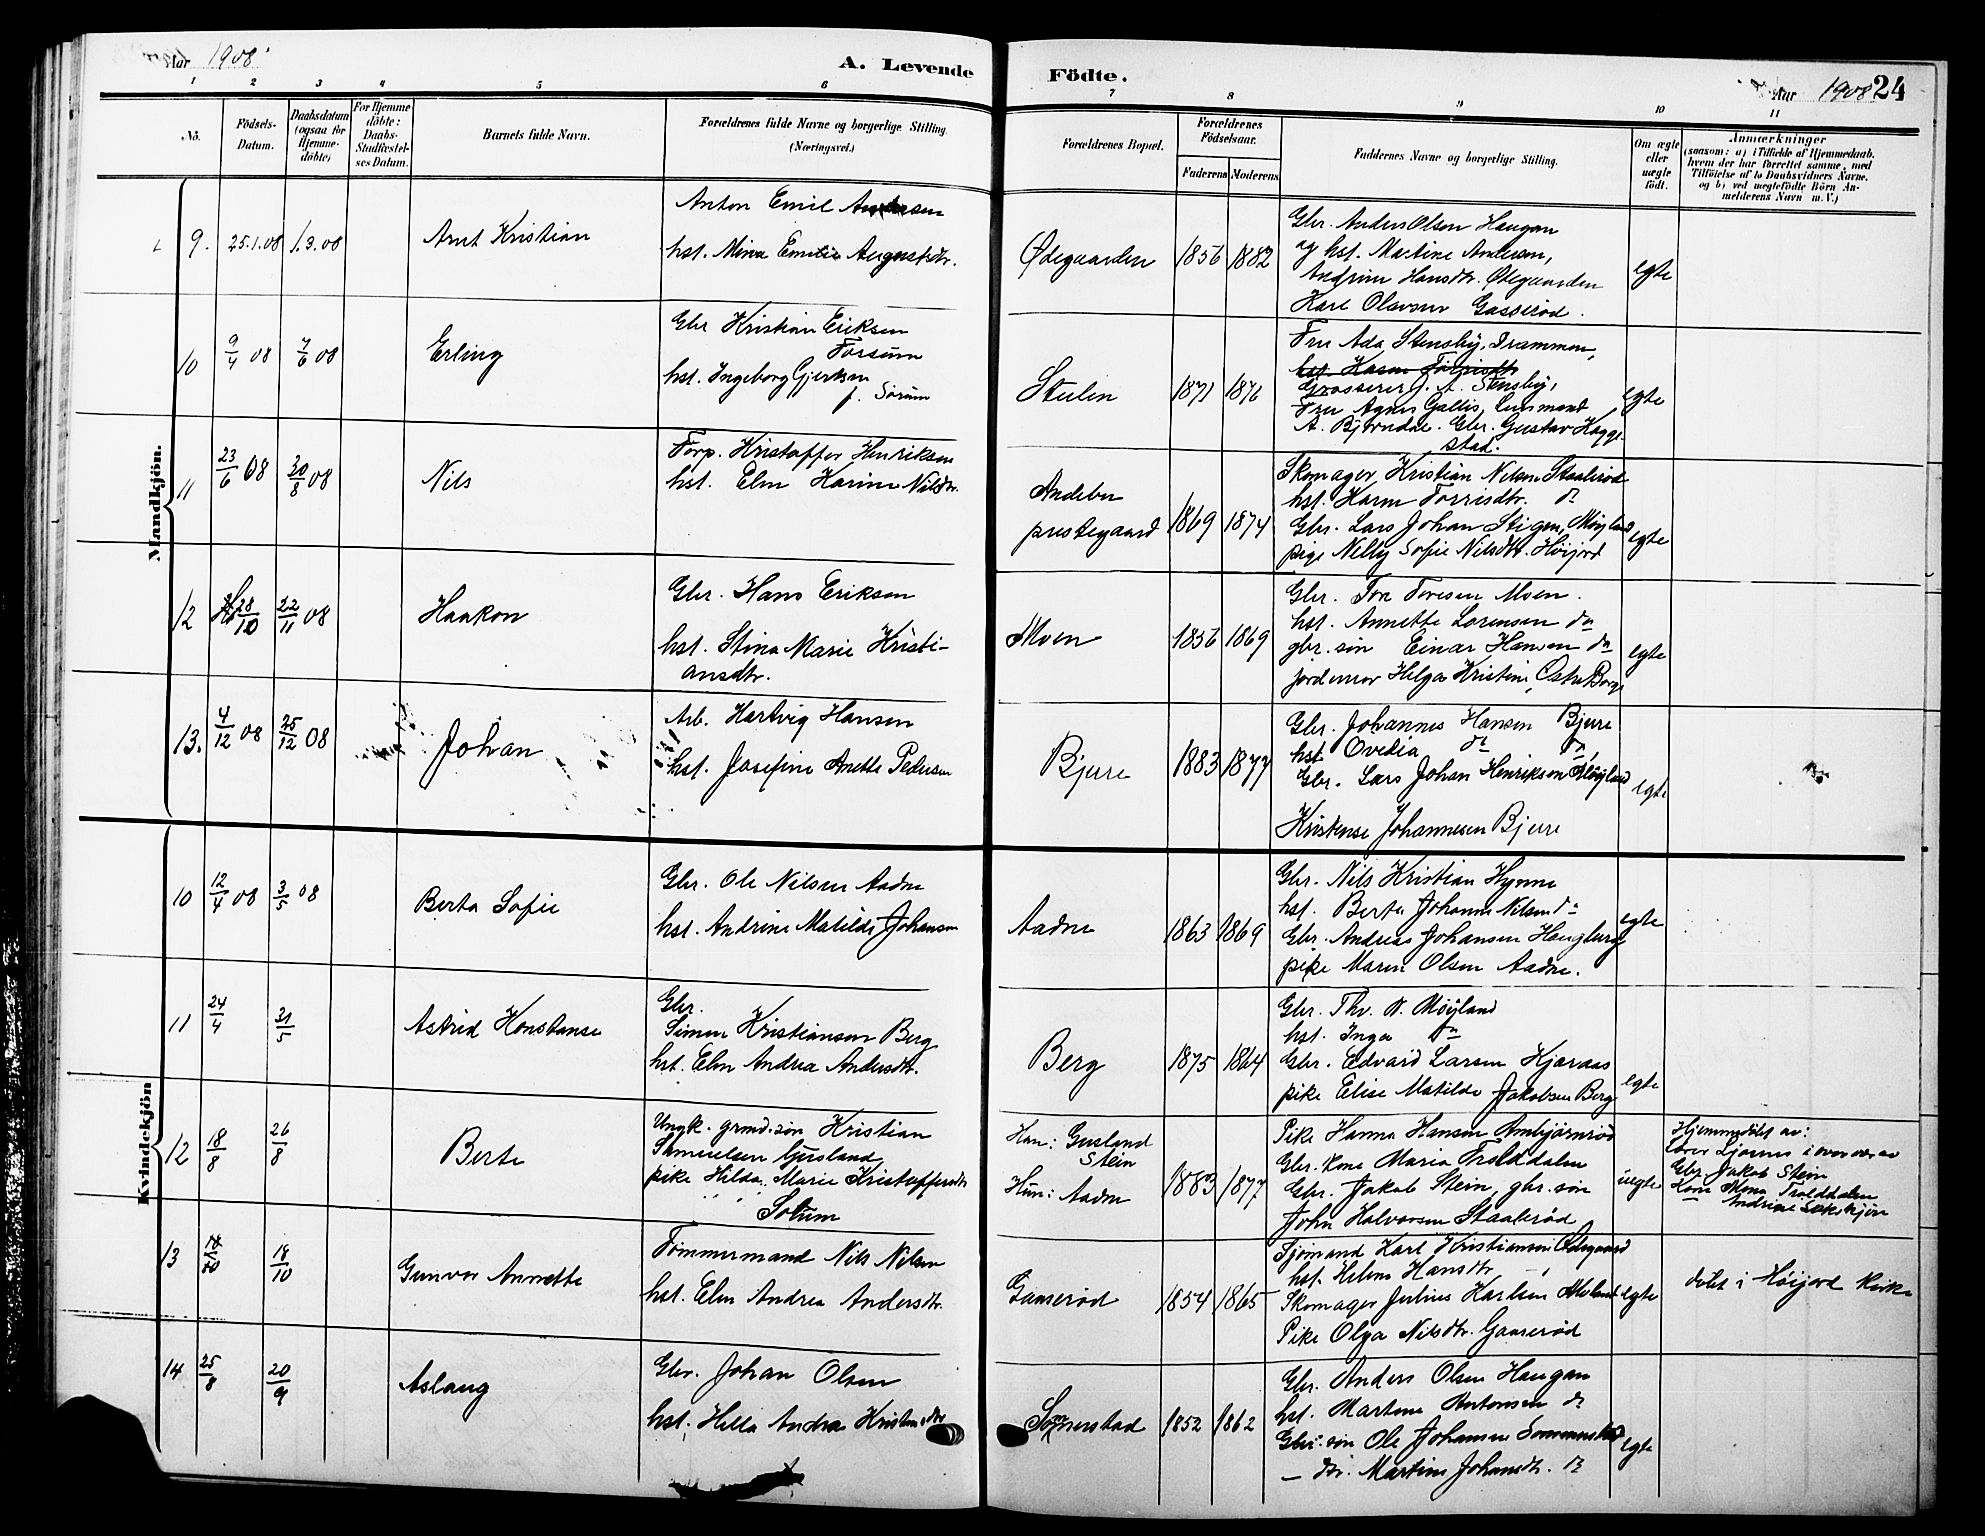 Aar 1908
A. Levende
Födte.
Aar 1908 24
1 2 3 4 5 6 7 8 9 10 11
No.
Födsels-Datum.
Daabsdatum (ogsaa for Hjemme-döbte)
For Hjemme döbte: Daabs-Stadfæstel-ses Datum.
Barnets fulde Navn.
Forældrenes fulde Navne og borgerlige Stilling. (Næringsvei.)
Forældrenes Bopæl.
Forældrenes Födselsaar.
Faderens Moderens
Faddernes Navne og borgerlige Stilling.
Om ægte eller uægte födt.
Anmærkninger
(saasom: a) i Tilfælde af Hjemmedaab.
hvem der har forrettet samme, med
Tilföielse af to Daabsvidners Navne.
og b) ved uægtefödte Börn An-
melderens Navn m.V.)
Mandkjön.
9. 25.1.08 1.3.08 Arnt Kristian
Anton Emil Andersen
hst. Mina Emilie Augustdtr.
Ødegaarden 1856 1882
Gbr. Anders Olson Haugan
og hst. Martine Andersen,
Andrine Hansdtr. Ødegaarden
Karl Olavsen Gasserød.
egte
10 9/4 08 7/6 08 Erling
Gbr Kristian Eriksen
Forsum
hst. Ingeborg Gjertsen
f. Sørum
Stulen 1871 1876
Fru Ada Stensby, Drammen,
Grosserer J. A. Stensby,
Fru Agnes Gallis, lensmand
A. Bjørndal. Gbr. Gustav Hogge-
stad.
egte
11 23/6 08 30/8 08 Nils
Forp. Kristoffer Henriksen
hst. Elen Karine Nilsdtr.
Andebu
prestegaard 1869 1874
Skomager Kristian Nilsen Staalerød
hst. Karen Torrisdtr. do
Gbr. Lars Johan Stigen, Møyland
pige Nelly Sofie Nilsdtr. Høijord
egte
12 28/10 22/11 08 Haakon
Gbr. Hans Eriksen
hst. Stina Marie Kristi-
ansdtr.
Moen 1856 1869
Gbr. Tor Toresen Moen.
hst. Annette Lorensen do
gbr. søn Einar Hansen do
jordmor Helga Kristine, Østre Borge
egte
13. 4/12 08 25/12 08 Johan
Arb. Hartvig Hansen
hst. Josefine Anette Pedersen
Bjure 1883 1877
Gbr. Johannes Hansen Bjure
hst Ovedia do do
Gbr. Lars Johan Henriksen Møyland
Kristense Johannesen Bjure
egte
Kvindekjön
10 12/4 08 3/5 08 Berta Sofie
Gbr. Ole Nilsen Aadne
hst. Andrine Matilde Johansen
Aadne 1863 1869
Gbr. Nils Kristian Hynne
hst. Berta Johanne Nilsen do
Gbr. Andreas Johansen Haugberg
pike Maren Olsen Aadne.
egte
11 24/4 31/5 Astrid Konstanse
Gbr.
Simen Kristiansen Berg
hst. Elen Andrea Andersdtr.
Berg 1875 1864
Gbr. Thv. A. Møyland
hst. Inga do
Gbr. Edvard Larsen Kjæraas
pike Elise Matilde Jakobsen Berg
egte
12 18/8 26/8 Berte
Ungk. grmd. søn Kristian
Samuelsen Gusland
pike Hilda Marie Kristoffersdtr
Solum
Han: Gusland
Stein
Hun: Aadne 1883 1877
Pike Hanna Hansen Ambjørnrød
Gbr. kone Maria Trolddalen
Gbr. Jakob Stein, gbr. søn
John Halvorsen Staalerød
uegte
Hjemmedøbt av:
lærer Ljosnes i overvær av
Gbr. Jakob Stein
Kone Mona Trolddalen
13 18/10 Gunvor Annette
Tømmermand Nils Nilsen
hst. Elen Andrea Andersdtr.
Gaaserød 1854 1865
Sjømand Karl Kristiansen Ødegaard
hst. Helene Hansdtr —,
Skomager Julius Karlsen Møland
Pike Olga Nilsdtr. Gaaserød
egte
døbt i Høijord kirke
14 25/8 20/9 Aslaug
Gbr. Johan Olsen
hst. Hella Andrea Kristensdtr
Sommerstad 1852 1862
Gbr. Anders Olsen Haugan
hst. Martine Antonsen do
Gbr. søn Ole Johansen Sommerstad
— dtr. Martine Johansdtr. do
egte